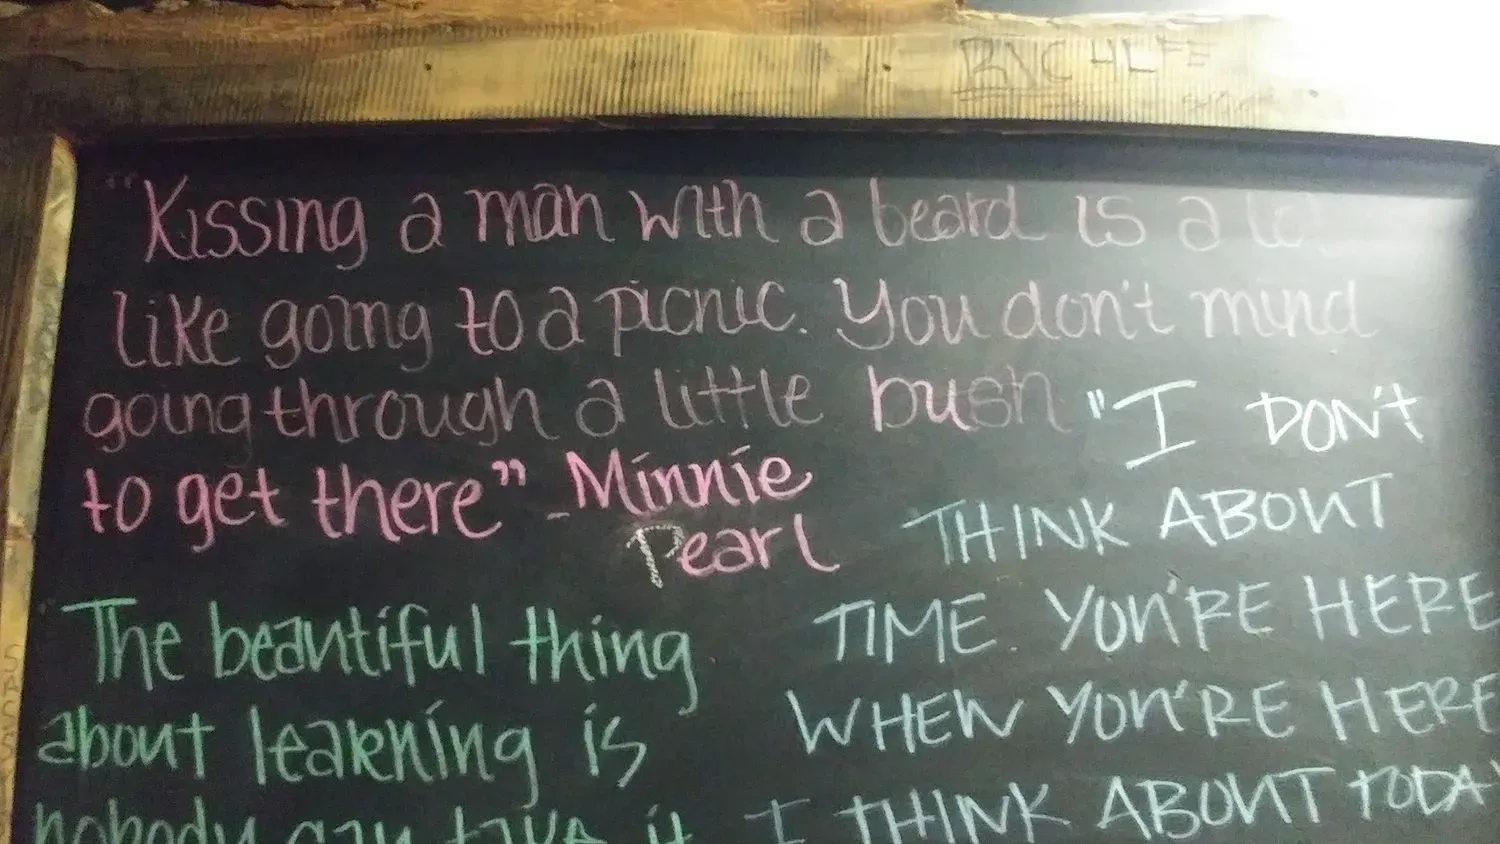 "Kissing a man with a beard is a lot
like going to a picnic. You don't mind
going through a little bush
to get there" - Minnie
Pearl
"I DON'T
THINK ABOUT
TIME. YOU'RE HERE
WHEN YOU'RE HERE
I THINK ABOUT TODAY
The beautiful thing
about learning is
nobody can take it